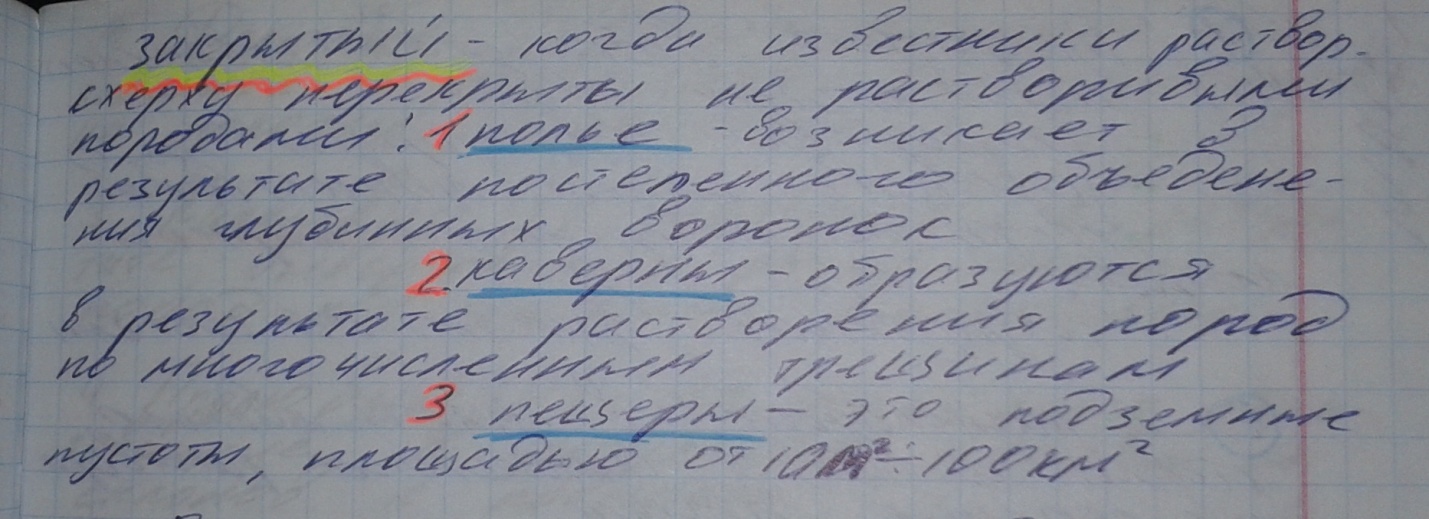 закрытый - когда известники раствор.
сверху перекрыты не растворивыми
породами: 1 полье - возникает в
результате постепенного объедене-
ния глубинных воронок
2. каверны - образуются
в результате растворения пород
по многочисленным трещинам
3 пещеры - это подземные
пустоты, площадью от 10м² ÷ 100км²